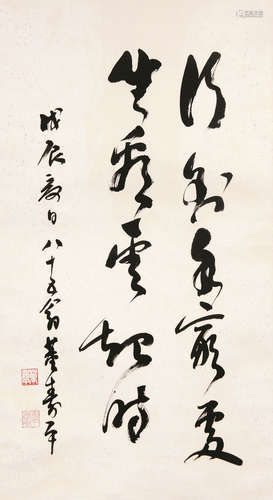 行到水穷处
坐看云起时
戊辰夏日八十五翁董寿平